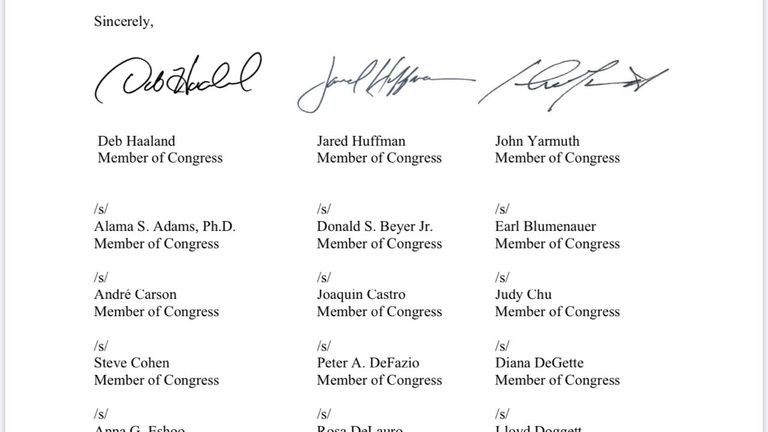 Sincerely,
Deb Haaland Jared Huffman
Deb Haaland Jared Huffman John Yarmuth
Member of Congress Member of Congress Member of Congress
/s/ /s/ /s/
Alama S. Adams, Ph.D. Donald S. Beyer Jr. Earl Blumenauer
Member of Congress Member of Congress Member of Congress
/s/ /s/ /s/
André Carson Joaquin Castro Judy Chu
Member of Congress Member of Congress Member of Congress
/s/ /s/ /s/
Steve Cohen Peter A. DeFazio Diana DeGette
Member of Congress Member of Congress Member of Congress
/s/ /s/ /s/
Anna G. Eshoo Rosa DeLauro Lloyd Doggett